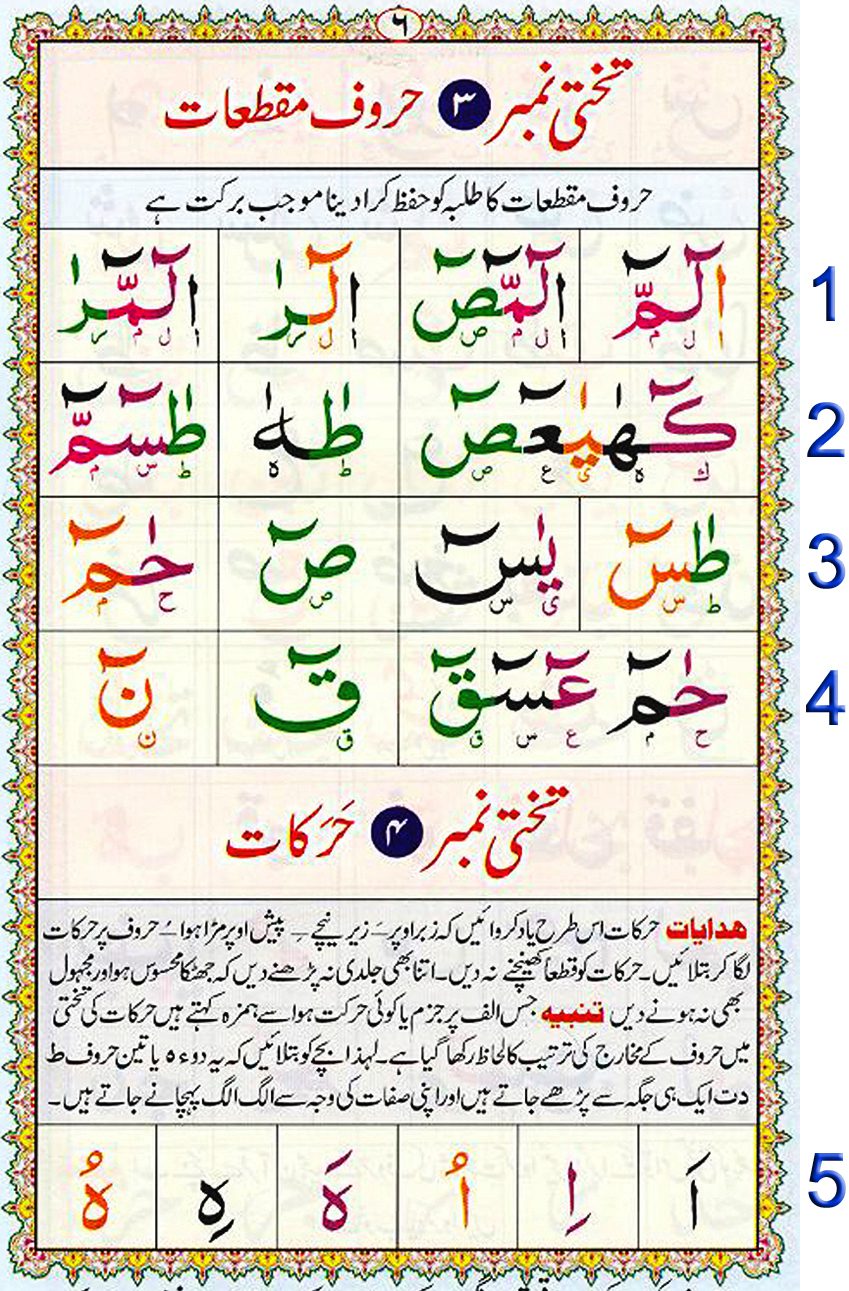 ٦
تختی نمبر ۳ حروف مقطعات
حروف مقطعات کا طلبہ کو حفظ کرا دینا موجب برکت ہے
الٓمّٓ الٓمّٓصٓ الٓرٰ الٓمّٓرٰ 1
ا ل م ا ل م ص ا ل ر ا ل م ر
كٓهٰيٰعٓصٓ طٰهٰ طٰسٓمّٓ 2
ك ه ی ع ص ط ه ط س م
طٰسٓ يٰسٓ صٓ حٰمٓ 3
ط س ی س ص ح م
حٰمٓ عٓسٓقٓ قٓ نٓ 4
ح م ع س ق ق ن
تختی نمبر ۴ حَرَکات
هدایات حرکات اس طرح یاد کروائیں کہ زبر اوپر ـَ زیر نیچے ـِ پیش اوپر مڑا ہوا ـُ حروف پر حرکات
لگا کر بتلائیں۔ حرکات کو قطعاً کھینچنے نہ دیں۔ اتنا بھی جلدی نہ پڑھنے دیں کہ جھٹکا محسوس ہو اور مجہول
بھی نہ ہونے دیں تنبیه جس الف پر جزم یا کوئی حرکت ہو اسے ہمزہ کہتے ہیں حرکات کی تختی
میں حروف کے مخارج کی ترتیب کا لحاظ رکھا گیا ہے۔ لہذا بچے کو بتلائیں کہ یہ دو ء ہ یا تین حروف ط
د ت ایک ہی جگہ سے پڑھے جاتے ہیں اور اپنی صفات کی وجہ سے الگ الگ پہچانے جاتے ہیں۔
اَ اِ اُ هَ هِ هُ 5